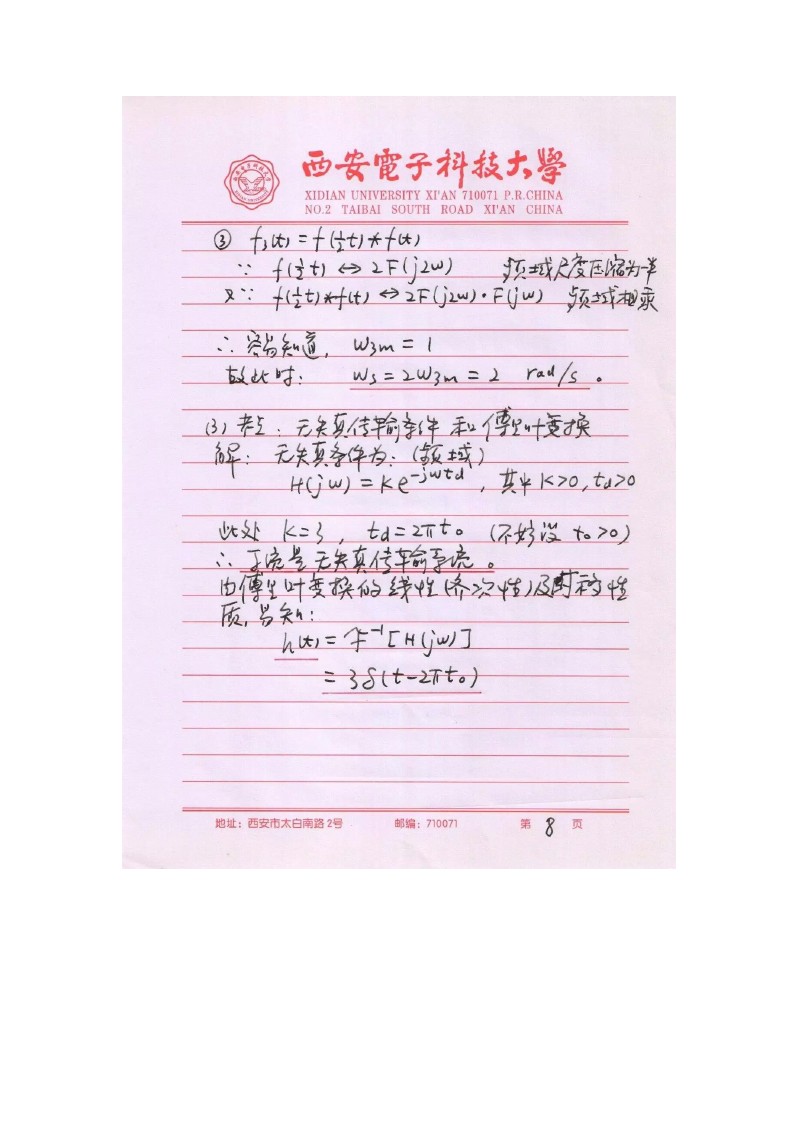 西安電子科技大學
XIDIAN UNIVERSITY XI'AN 710071 P.R.CHINA
NO.2 TAIBAI SOUTH ROAD XI'AN CHINA
③ f₃(t) = f(½t)*f(t)
∵ f(½t) ↔ 2F(j2w) 频域尺度压缩为一半
又∵ f(½t)*f(t) ↔ 2F(j2w)·F(jw) 频域相乘
∴ 容易知道, w₃ₘ = 1
故此时: wₛ = 2w₃ₘ = 2 rad/s 。
(3) 考点: 无失真传输条件和傅里叶变换
解: 无失真条件为: (频域)
H(jw) = Ke^{-jwtd}, 其中 K>0, td>0
此处 K=3, td=2πt₀ (不妨设 t₀>0)
∴ 系统是无失真传输系统。
由傅里叶变换的线性(齐次性)及时移性
质,易知:
h(t) = F⁻¹[H(jw)]
= 3δ(t-2πt₀)
地址: 西安市太白南路2号 邮编: 710071 第 8 页